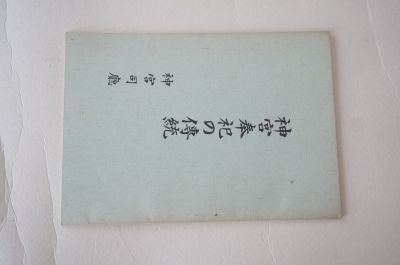 神宮奉祀の傳統
神宮司廳